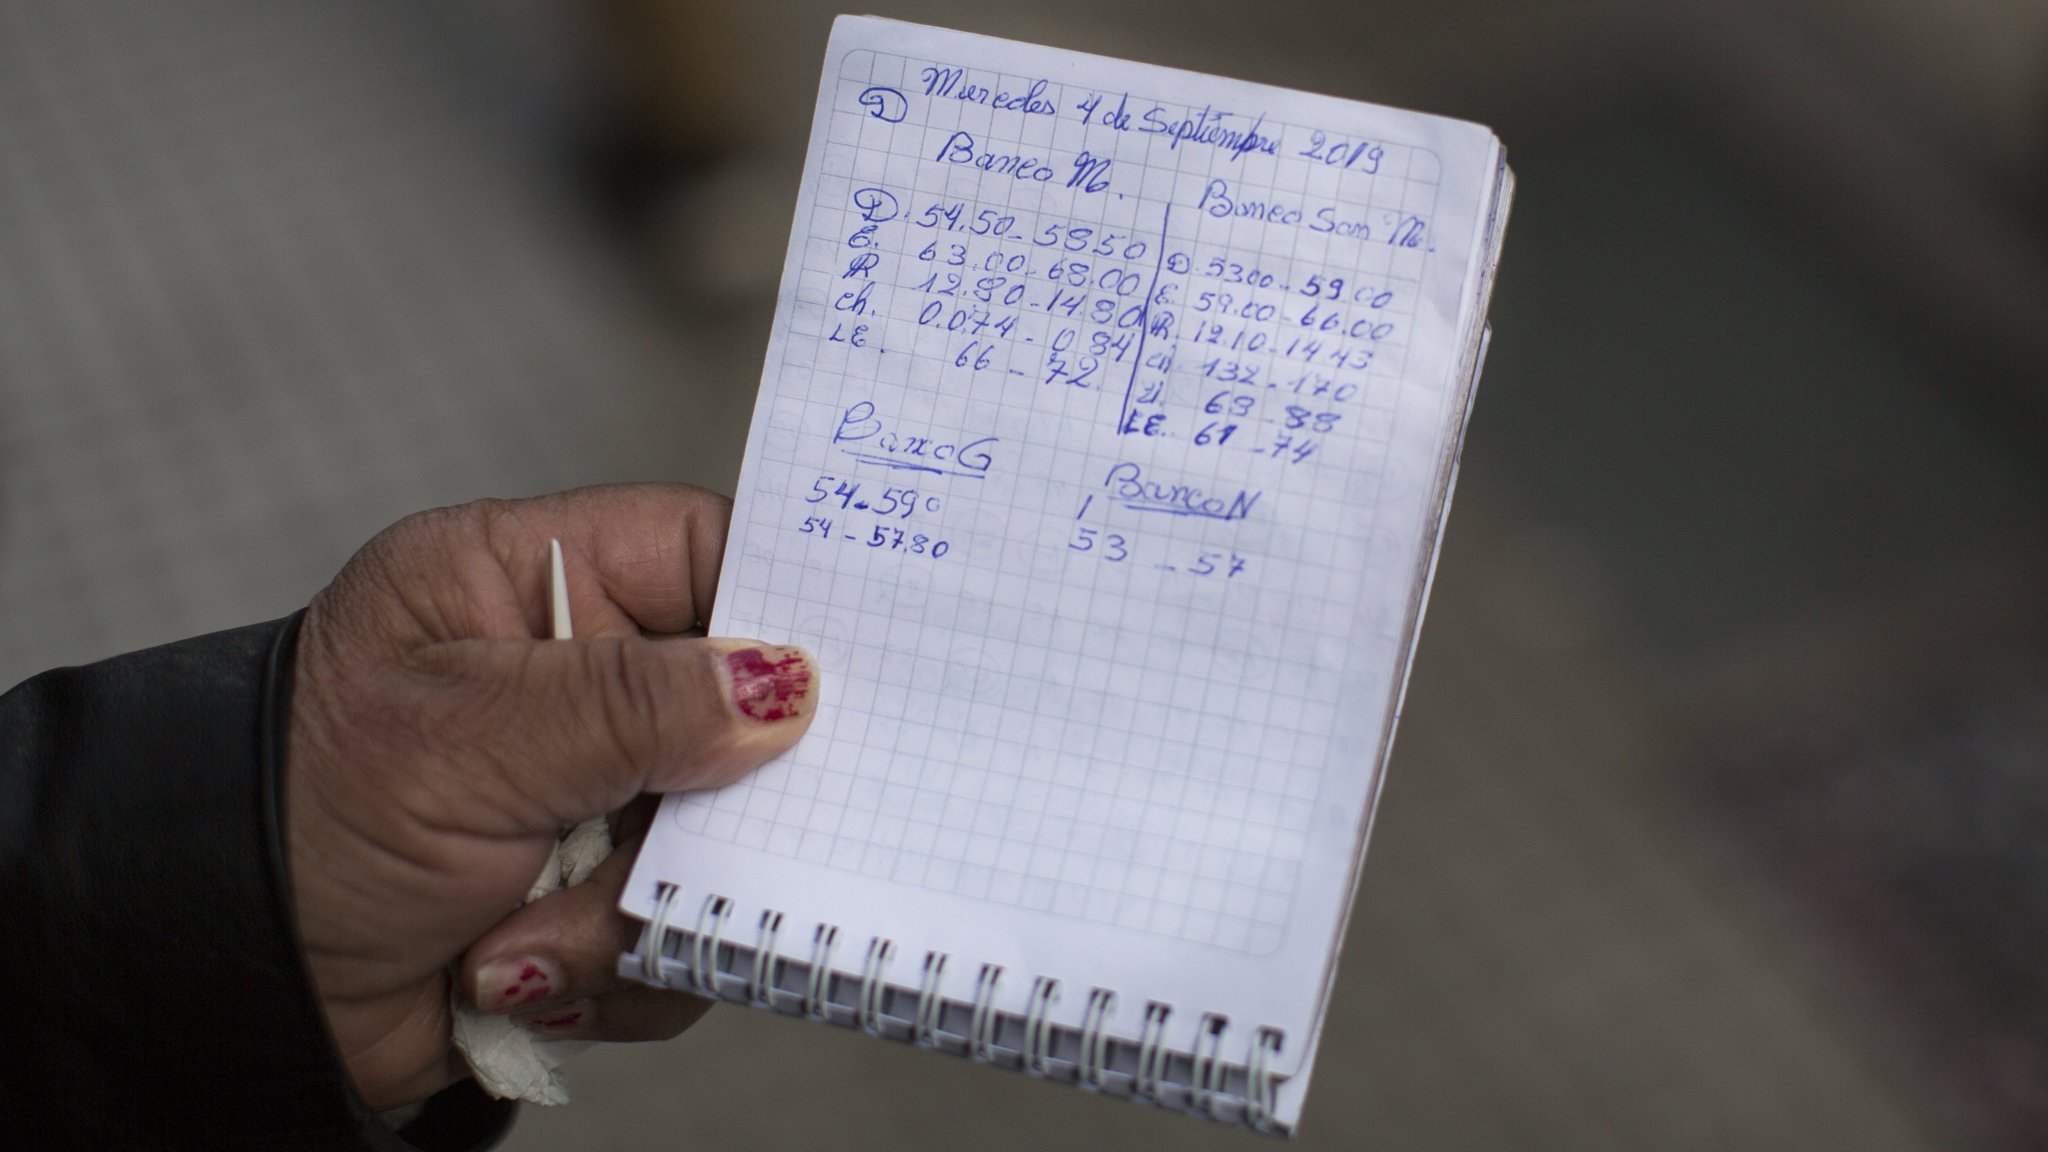 Miercoles 4 de Septiempre 2019
D
Banco M.
D. 54.50 - 58.50
E. 63.00 - 68.00
R 12.80 - 14.80
ch. 0.074 - 0 84
LE. 66 - 72.
Banco San M.
D. 5300 - 59.00
E. 59.00 - 66.00
R. 12.10 - 14 43
ch. 132 - 170
U. 63 - 88
LE. 61 - 74
Banco G
54 - 59
54 - 57.80
Banco N
53 - 57